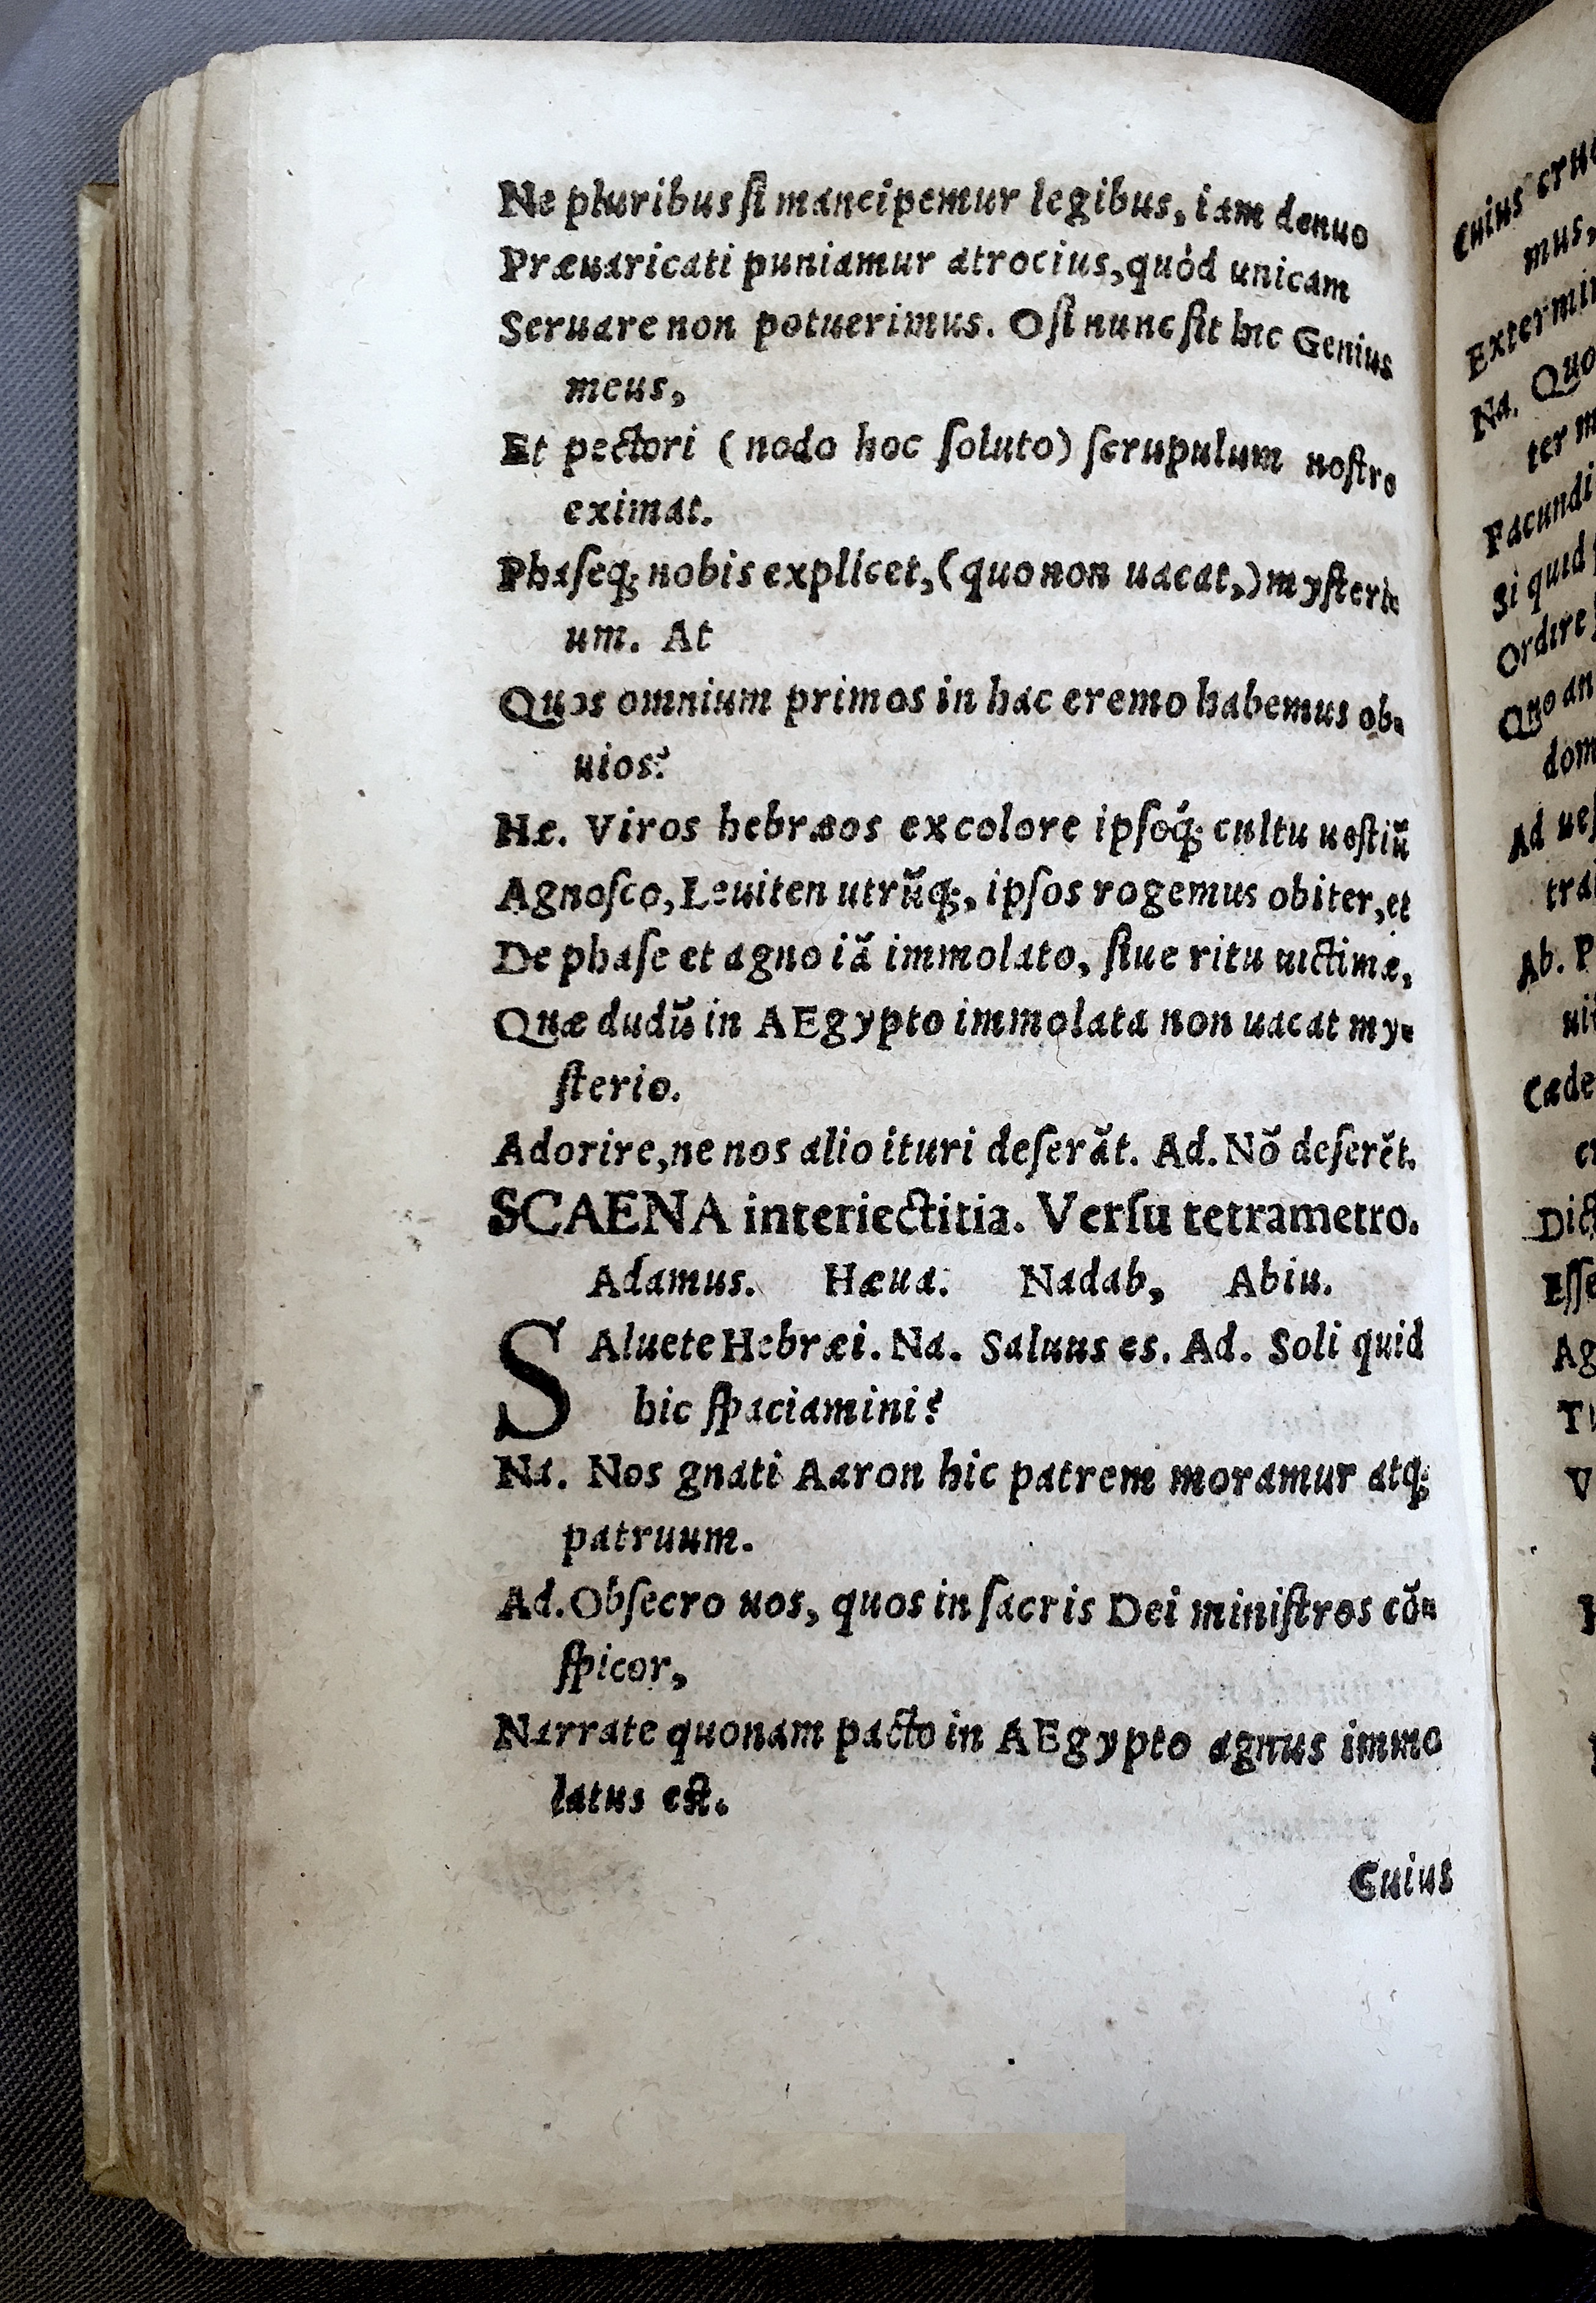 Ne pluribus ſi mancipemur legibus, iam denuo
Præuaricati puniamur atrocius, quòd unicam
Seruare non potuerimus. O ſi nunc ſit hic Genius
meus,
Et pectori (nodo hoc ſoluto) ſcrupulum noſtro
eximat.
Phaſeq; nobis explicet, (quo non uacat,) myſteri
um. At
Quos omnium primos in hac eremo habemus ob-
uios?
He. Viros hebræos ex colore ipſoq́; cultu ueſtiũ
Agnoſco, Leuiten utrũq;, ipſos rogemus obiter, et
De phaſe et agno iã immolato, ſiue ritu uictimæ,
Quæ dudũ in AEgypto immolata non uacat my-
ſterio.
Adorire, ne nos alio ituri deſerãt. Ad. Nõ deſerẽt.
SCAENA interiectitia. Verſu tetrametro.
Adamus. Hæua. Nadab, Abiu.
SAluete Hebræi. Na. Saluus es. Ad. Soli quid
hic ſpaciamini?
Na. Nos gnati Aaron hic patrem moramur atq;
patruum.
Ad. Obſecro uos, quos in ſacris Dei miniſtros cõ-
ſpicor,
Narrate quonam pacto in AEgypto agnus immo
latus eſt.
Cuius
Cuius
mus,
Na. Quo
ter
Si quid
Ordire
Quo an
dom
Ad
Ab. P
Cade
Ag